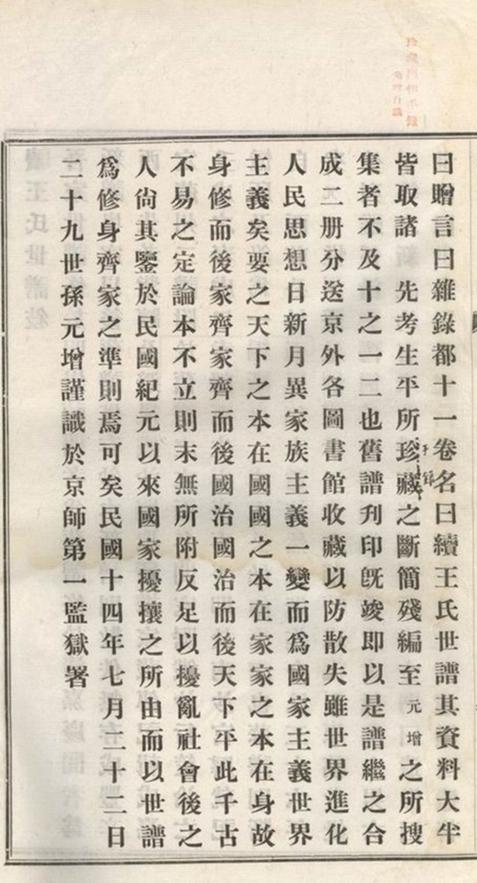 曰贈言曰雜錄都十一卷名曰續王氏世譜其資料大半
皆取諸 先考生平所珍藏之斷簡殘編至元增之所搜
集者不及十之一二也舊譜刋印旣竣即以是譜繼之合
成二册分送京外各圖書館收藏以防散失雖世界進化
人民思想日新月異家族主義一變而爲國家主義世界
主義矣要之天下之本在國國之本在家家之本在身故
身修而後家齊家齊而後國治國治而後天下平此千古
不易之定論本不立則末無所附反足以擾亂社會後之
人尙其鑒於民國紀元以來國家擾攘之所由而以世譜
爲修身齊家之準則焉可矣民國十四年七月二十二日
二十九世孫元增謹識於京師第一監獄署